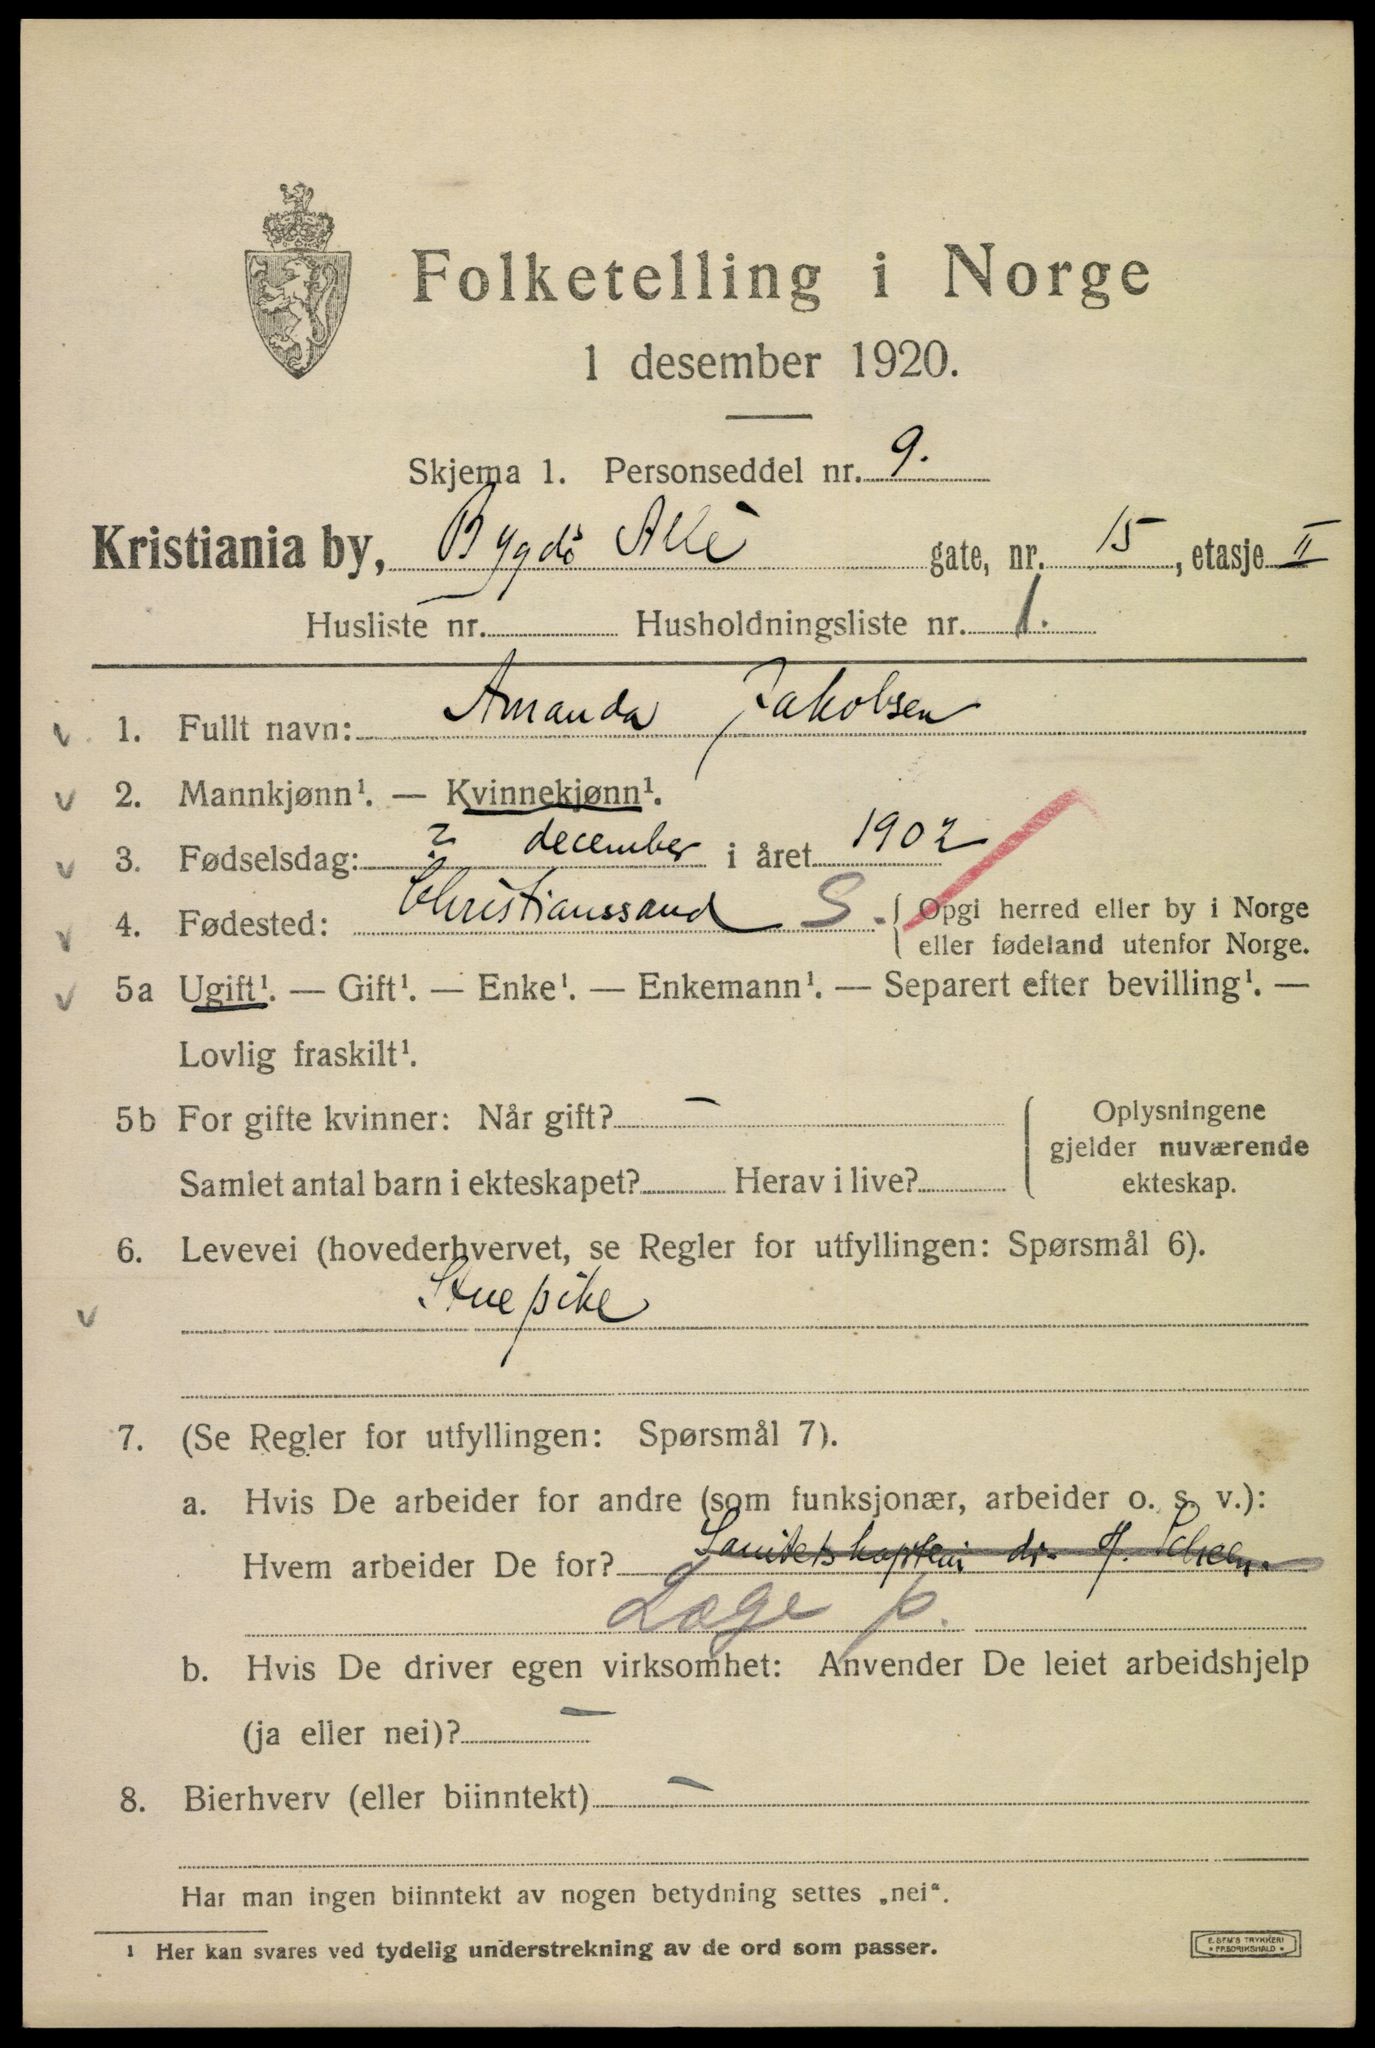 Folketelling i Norge
1 desember 1920.
Skjema 1. Personseddel nr. 9.
Kristiania by, Bygdö Allè gate, nr. 15, etasje II
Husliste nr. Husholdningsliste nr. 1.
1. Fullt navn: Amanda Jakobsen
2. Mannkjønn¹. — Kvinnekjønn¹.
3. Fødselsdag: 2 december i året 1902
4. Fødested: Christianssand S. { Opgi herred eller by i Norge
eller fødeland utenfor Norge.
5a Ugift¹. — Gift¹. — Enke¹. — Enkemann¹. — Separert efter bevilling¹. —
Lovlig fraskilt¹.
5b For gifte kvinner: Når gift? –
Samlet antal barn i ekteskapet? Herav i live?
Oplysningene
gjelder nuværende
ekteskap.
6. Levevei (hovederhvervet, se Regler for utfyllingen: Spørsmål 6).
Stuepike
7. (Se Regler for utfyllingen: Spørsmål 7).
a. Hvis De arbeider for andre (som funksjonær, arbeider o. s. v.):
Hvem arbeider De for? Sanitetskaptein dr.
Læge p.
b. Hvis De driver egen virksomhet: Anvender De leiet arbeidshjelp
(ja eller nei)? –
8. Bierhverv (eller biinntekt) –
Har man ingen biinntekt av nogen betydning settes „nei“.
¹ Her kan svares ved tydelig understrekning av de ord som passer.
E. SEM'S TRYKKERI
* FREDRIKSHALD *